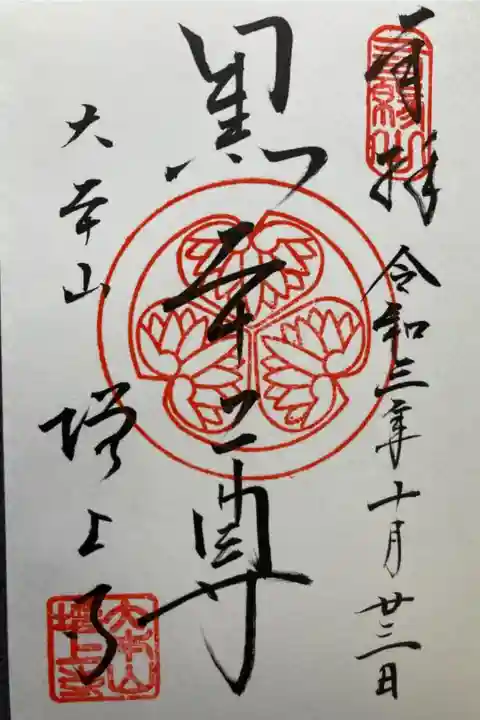 奉拝
令和三年十月廿三日
黒本尊
大本山
増上寺
大本山
増上寺